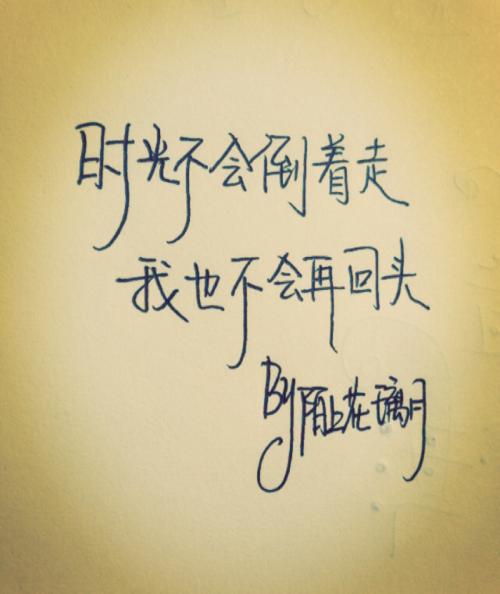 时光不会倒着走
我也不会再回头
By陌上花璃月